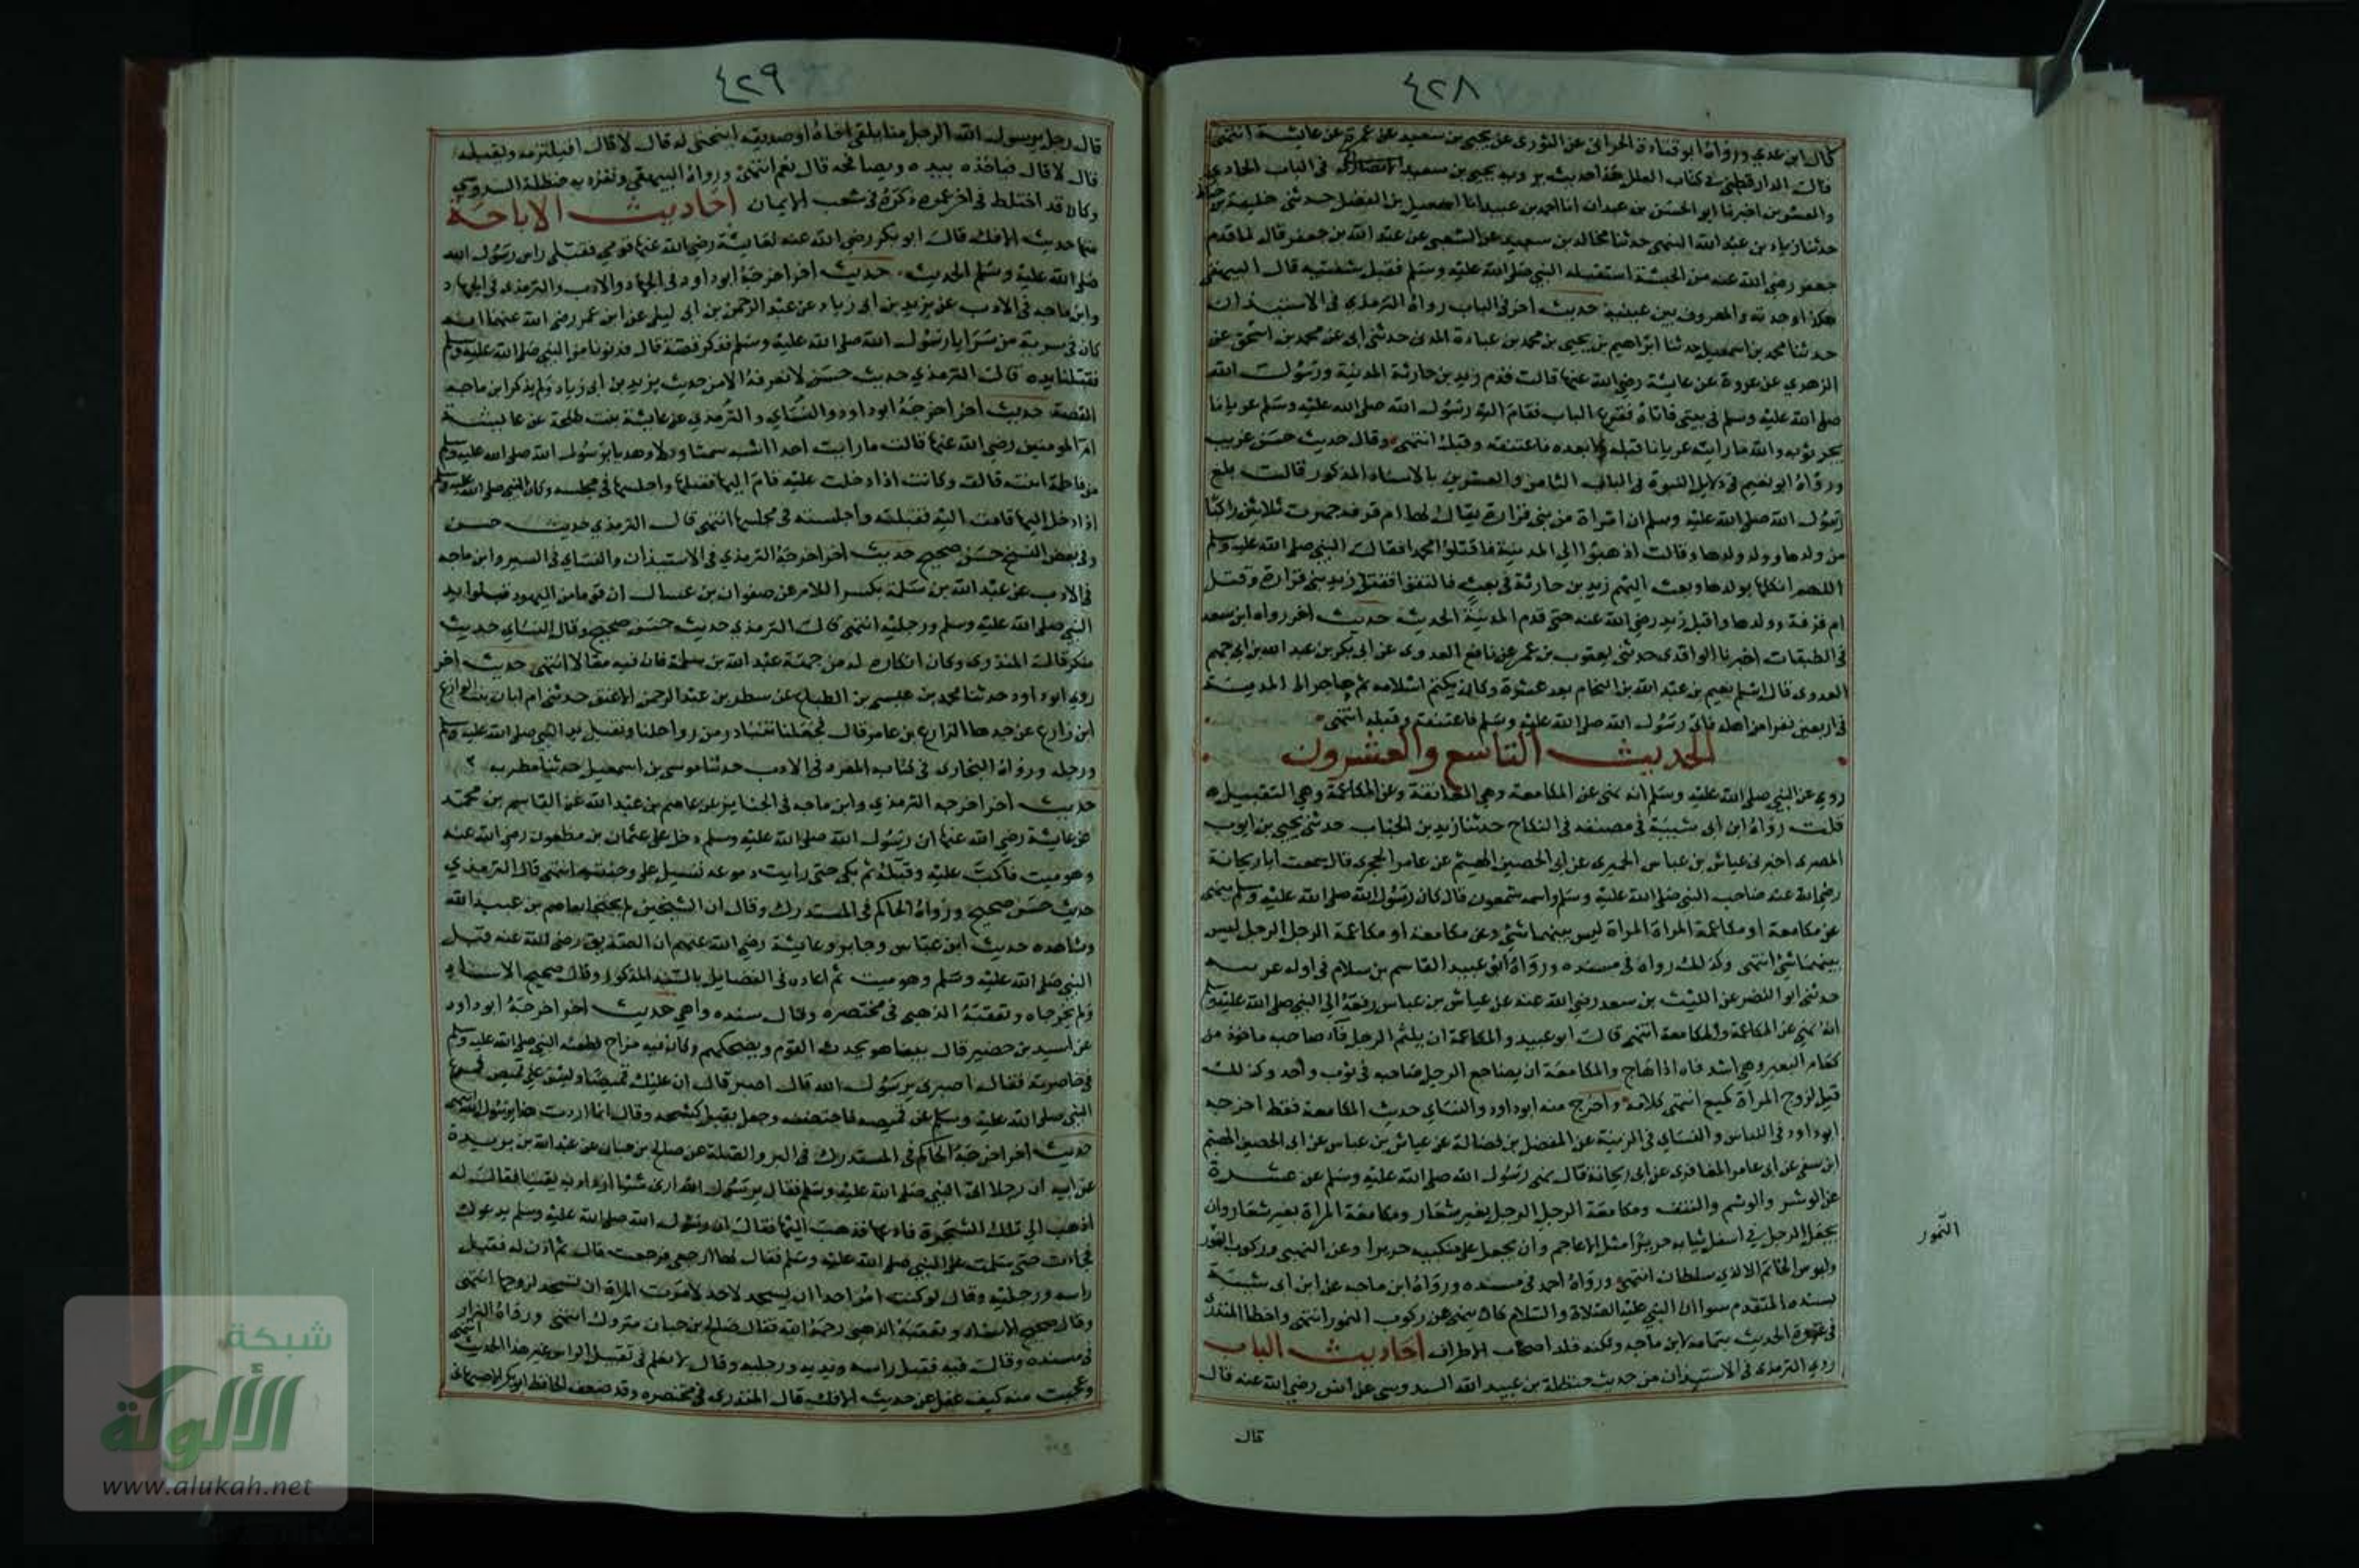 ٤٢٨
قال ابن عدي ورواه ابو قتادة الحراني عن الثوري عن يحيى بن سعيد عن عمرة عن عايشة انتهى
قال الدارقطني في كتاب العلل هذا حديث يرويه يحيى بن سعيد الانصاري في الباب الحادي
والعشرين اخبرنا ابو الحسن بن عبدان انا احمد بن عبيد انا اسمعيل بن الفضل حدثني خليفة بن خياط
حدثنا زياد بن عبد الله البنهى حدثنا مجالد بن سعيد عن الشعبي عن عبد الله بن جعفر قال لما قدم
جعفر رضي الله عنه من الحبشة استقبله النبي صلى الله عليه وسلم فقبل شفتيه قال البيهقي
هكذا وجدته والمعروف بين عينيه حديث اخر في الباب رواه الترمذي في الاستيذان
حدثنا محمد بن اسمعيل حدثنا ابراهيم بن يحيى بن محمد بن عبادة المدني حدثني ابي عن محمد بن اسحق عن
الزهري عن عروة عن عايشة رضي الله عنها قالت قدم زيد بن حارثة المدينة ورسول الله
صلى الله عليه وسلم في بيتي فاتاه فقرع الباب فقام اليه رسول الله صلى الله عليه وسلم عريانا
يجر ثوبه والله ما رايته عريانا قبله ولا بعده فاعتنقه وقبله انتهى وقال حديث حسن غريب
ورواه ابو نعيم في دلايل النبوة في الباب الثامن والعشرين بالاسناد المذكور قالت بلغ
رسول الله صلى الله عليه وسلم ان امراة من بني فزارة يقال لها ام قرفه جهزت ثلاثين راكبا
من ولدها وولد ولدها وقالت اذهبوا الى المدينة فاقتلوا محمدا فقال النبي صلى الله عليه وسلم
اللهم اثكلها بولدها وبعث اليهم زيد بن حارثة في بعث فالتقوا فقتل زيد بني فزارة وقتل
ام قرفة وولدها واقبل زيد رضي الله عنه حتى قدم المدينة الحديث حديث اخر رواه ابن سعد
في الطبقات اخبرنا الواقدي حدثني يعقوب بن عمر عن نافع العدوي عن ابي بكر بن عبد الله بن ابي جهم
العدوى قال اسلم نعيم بن عبد الله بن النحام بعد عشرة وكان يكتم اسلامه ثم هاجر الى المدينة
في اربعين نفرا من اهله فاتى رسول الله صلى الله عليه وسلم فاعتنقه وقبله انتهى
الحديث التاسع والعشرون
روي عن النبي صلى الله عليه وسلم انه نهى عن المكامعة وهي المعانقة وعن المكاعمة وهي التقبيل
قلت رواه ابن ابي شيبة في مصنفه في النكاح حدثنا زيد بن الحباب حدثني يحيى بن ايوب
المصرى اخبرني عياش بن عباس الحميرى عن ابي الحصين الهيثم عن عامر الحجرى قال سمعت ابا ريحانة
رضي الله عنه صاحب النبي صلى الله عليه وسلم واسمه شمعون قال كان رسول الله صلى الله عليه وسلم ينهى
عن مكامعة او مكاعمة المراة المراة ليس بينهما شئ وعن مكامعة او مكاعمة الرجل الرجل ليس
بينهما شئ انتهى وكذلك رواه في مسنده ورواه ابو عبيد القاسم بن سلام في اول غريبه
حدثني ابو النضر عن الليث بن سعد رضي الله عنه عن عياش بن عباس رفعه الى النبي صلى الله عليه وسلم
انه نهى عن المكاعمة والمكامعة انتهى قال ابو عبيد والمكاعمة ان يلثم الرجل فاه صاحبه ماخوذ من
كعام البعير وهي ان يشد فاه اذا هاج والمكامعة ان يضاجع الرجل صاحبه في ثوب واحد وكذلك
قيل لزوج المراة كميع انتهى كلامه واخرج منه ابو داود والنساي حديث المكامعة فقط اخرجه
ابو داود في اللباس والنساي في الزينة عن المفضل بن فضالة عن عياش بن عباس عن ابي الحصين الهيثم
ابن سفي عن ابي عامر المغافرى عن ابي ريحانة قال نهى رسول الله صلى الله عليه وسلم عن عشرة
عن الوشر والوشم والنتف ومكامعة الرجل الرجل بغير شعار ومكامعة المراة بغير شعار وان
يجعل الرجل في اسفل ثيابه حريرا مثل الاعاجم وان يجعل على منكبيه حريرا وعن النهبى وركوب النمور
النمور
ولبوس الخاتم الا لذي سلطان انتهى ورواه احمد في مسنده ورواه ابن ماجه عن ابن ابي شيبة
بسنده المتقدم سوا ان النبي عليه الصلاة والسلام كان ينهى عن ركوب النمور انتهى واخطا المنذري
في عزوه الحديث بتمامه لابن ماجه ولكنه قلد اصحاب الاطراف احاديث الباب
روي الترمذي في الاستيذان من حديث حنظلة بن عبيد الله السدوسي عن انس رضي الله عنه قال
قال
٤٢٩
قال رجل يرسول الله الرجل منا يلقى اخاه او صديقه اينحنى له قال لا قال افيلتزمه ويقبله
قال لا قال فياخذه بيده ويصافحه قال نعم انتهى ورواه البيهقي وتفرد به حنظلة السدوسي
وكان قد اختلط في اخر عمره ذكره في شعب الايمان احاديث الاباحة
منها حديث الافك قال ابو بكر رضي الله عنه لعايشة رضي الله عنها قومي فقبلي راس رسول الله
صلى الله عليه وسلم الحديث حديث اخر اخرجه ابو داود في الجهاد والادب والترمذي في الجهاد
وابن ماجه في الادب عن يزيد بن ابي زياد عن عبد الرحمن بن ابي ليلى عن ابن عمر رضي الله عنهما انه
كان في سرية من سرايا رسول الله صلى الله عليه وسلم فذكر قصة قال فدنونا من النبي صلى الله عليه وسلم
فقبلنا يده قال الترمذي حديث حسن لا نعرفه الا من حديث يزيد بن ابي زياد ولم يذكر ابن ماجه
القصة حديث اخر اخرجه ابو داود والنساي والترمذي عن عايشة بنت طلحة عن عايشة
ام المومنين رضي الله عنها قالت ما رايت احدا اشبه سمتا ودلا وهديا برسول الله صلى الله عليه وسلم
من فاطمة ابنته قالت وكانت اذا دخلت عليه قام اليها فقبلها واجلسها في مجلسه وكان النبي صلى الله عليه وسلم
اذا دخل اليها قامت اليه فقبلته واجلسته في مجلسها انتهى قال الترمذي حديث حسن
وفي بعض النسخ حسن صحيح حديث اخر اخرجه الترمذي في الاستيذان والنساي في السير وابن ماجه
في الادب عن عبد الله بن سلمة بكسر اللام عن صفوان بن عسال ان قوما من اليهود قبلوا يد
النبي صلى الله عليه وسلم ورجليه انتهى قال الترمذي حديث حسن صحيح وقال النساي حديث
منكر قال المنذرى وكان انكاره له من جهة عبد الله بن سلمة فان فيه مقالا انتهى حديث اخر
روى ابو داود حدثنا محمد بن عيسى بن الطباع عن مطر بن عبد الرحمن الاعنق حدثتني ام ابان بنت الوازع
ابن زارع عن جدها الزارع بن عامر قال فجعلنا نتبادر من رواحلنا ونقبل يد النبي صلى الله عليه وسلم
ورجله ورواه البخارى في كتابه المفرد في الادب حدثنا موسى بن اسمعيل حدثنا مطر به
حديث اخر اخرجه الترمذي وابن ماجه في الجنايز عن عاصم بن عبد الله عن القاسم بن محمد
عن عايشة رضي الله عنها ان رسول الله صلى الله عليه وسلم دخل على عثمان بن مظعون رضي الله عنه
وهو ميت فاكب عليه وقبله ثم بكى حتى رايت دموعه تسيل على وجنتيه انتهى قال الترمذي
حديث حسن صحيح ورواه الحاكم في المستدرك وقال ان الشيخين لم يحتجا بعاصم بن عبيد الله
وشاهده حديث ابن عباس وجابر وعايشة رضي الله عنهم ان الصديق رضي الله عنه قبل
النبي صلى الله عليه وسلم وهو ميت ثم اعاده في الفضايل بالسند المذكور وقال صحيح الاسناد
ولم يخرجاه وتعقبه الذهبي في مختصره وقال سنده واهي حديث اخر اخرجه ابو داود
عن اسيد بن حضير قال بينما هو يحدث القوم ويضحكهم وكان فيه مزاح فطعنه النبي صلى الله عليه وسلم
في خاصرته فقال اصبرنى يرسول الله قال اصبر قال ان عليك قميصا وليس علي قميص فرفع
النبي صلى الله عليه وسلم عن قميصه فاحتضنه وجعل يقبل كشحه وقال انما اردت هذا يرسول الله انتهى
حديث اخر اخرجه الحاكم في المستدرك في البر والصلة عن صالح بن حبان عن عبد الله بن بريدة
عن ابيه ان رجلا اتى النبي صلى الله عليه وسلم فقال يرسول الله ارنى شيئا ازداد به يقينا فقال له
اذهب الى تلك الشجرة فادعها فذهب اليها فقال ان رسول الله صلى الله عليه وسلم يدعوك
فجاءت حتى سلمت على النبي صلى الله عليه وسلم فقال لها ارجعي فرجعت قال ثم اذن له فقبل
راسه ورجليه وقال لو كنت امرا احدا ان يسجد لاحد لامرت المراة ان تسجد لزوجها انتهى
وقال صحيح الاسناد وتعقبه الذهبي رحمه الله فقال صالح بن حبان متروك انتهى ورواه البزار
في مسنده وقال فيه فقبل راسه ويديه ورجليه وقال لا نعلم في تقبيل الراس غير هذا الحديث انتهى
وعجبت منه كيف غفل عن حديث الافك قال المنذرى في مختصره وقد صنف الحافظ ابو بكر الاصبهاني
شبكة
الألوكة
www.alukah.net